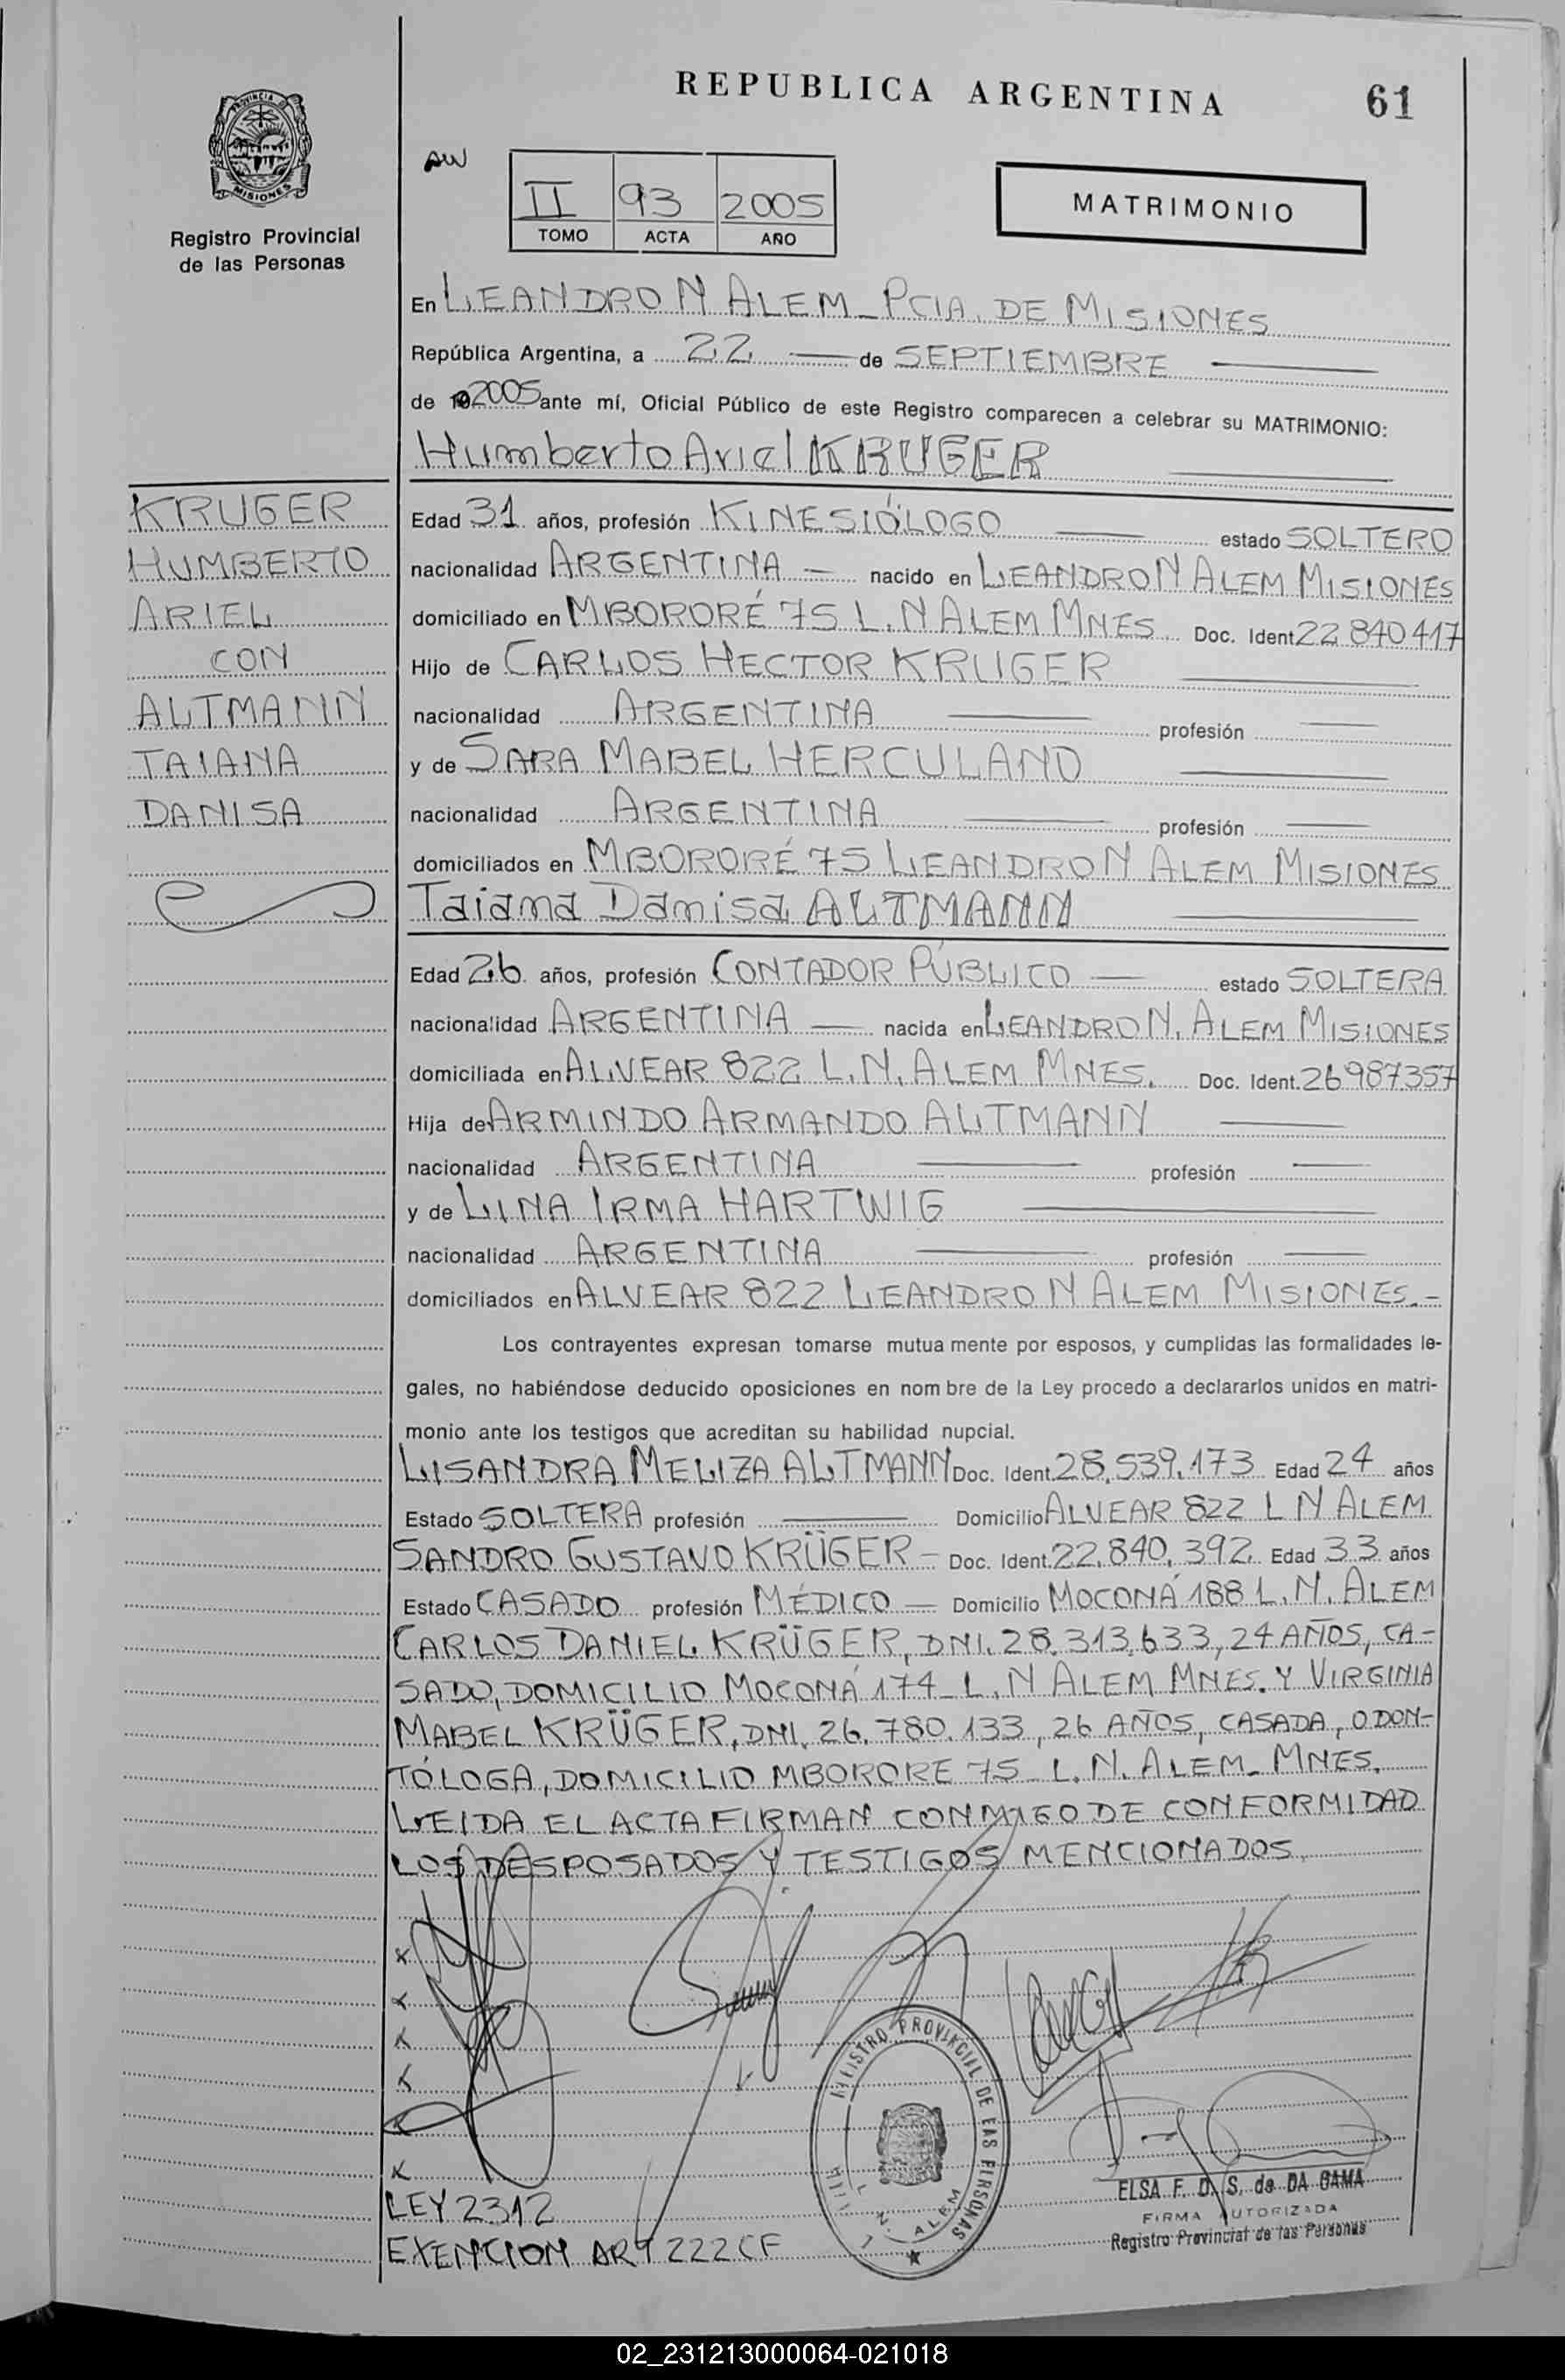 REPUBLICA ARGENTINA
61
PROVINCIA DE
MISIONES
Registro Provincial
de las Personas
AW
II 93 2005
TOMO ACTA AÑO
MATRIMONIO
En LEANDRO N ALEM_PCIA. DE MISIONES
República Argentina, a 22 de SEPTIEMBRE
de 2005 ante mí, Oficial Público de este Registro comparecen a celebrar su MATRIMONIO:
Humberto Ariel KRUGER
KRUGER
HUMBERTO
ARIEL
CON
ALTMANN
TAIANA
DANISA
Edad 31 años, profesión KINESIÓLOGO estado SOLTERO
nacionalidad ARGENTINA nacido en LEANDRO N ALEM MISIONES
domiciliado en MBORORÉ 75 L.N ALEM MNES Doc. Ident 22 840 417
Hijo de CARLOS HECTOR KRUGER
nacionalidad ARGENTINA profesión
y de SARA MABEL HERCULANO
nacionalidad ARGENTINA profesión
domiciliados en MBORORÉ 75 LEANDRO N ALEM MISIONES
Taiana Danisa ALTMANN
Edad 26 años, profesión CONTADOR PÚBLICO estado SOLTERA
nacionalidad ARGENTINA nacida en LEANDRO N. ALEM MISIONES
domiciliada en ALVEAR 822 L.N. ALEM MNES. Doc. Ident. 26987357
Hija de ARMINDO ARMANDO ALTMANN
nacionalidad ARGENTINA profesión
y de LINA IRMA HARTWIG
nacionalidad ARGENTINA profesión
domiciliados en ALVEAR 822 LEANDRO N ALEM MISIONES.-
Los contrayentes expresan tomarse mutua mente por esposos, y cumplidas las formalidades le-
gales, no habiéndose deducido oposiciones en nom bre de la Ley procedo a declararlos unidos en matri-
monio ante los testigos que acreditan su habilidad nupcial.
LISANDRA MELIZA ALTMANN Doc. Ident. 28.539.173 Edad 24 años
Estado SOLTERA profesión Domicilio ALVEAR 822 L N ALEM
SANDRO GUSTAVO KRÜGER - Doc. Ident. 22.840.392 Edad 33 años
Estado CASADO profesión MÉDICO Domicilio MOCONÁ 188 L.N. ALEM
CARLOS DANIEL KRÜGER, DNI. 28.313.633, 24 AÑOS, CA-
SADO, DOMICILIO MOCONÁ 174_L.N ALEM MNES. Y VIRGINIA
MABEL KRÜGER, DNI. 26.780.133, 26 AÑOS, CASADA, ODON-
TÓLOGA, DOMICILIO MBORORE 75_L.N. ALEM_MNES.
LEIDA EL ACTA FIRMAN CONMIGO DE CONFORMIDAD
LOS DESPOSADOS Y TESTIGOS MENCIONADOS.
REGISTRO PROVINCIAL DE LAS PERSONAS
L. N. ALEM
ELSA F. D. S. de DA GAMA
FIRMA AUTORIZADA
Registro Provincial de las Personas
LEY 2312
EXENCION ART 222 CF
02_231213000064-021018